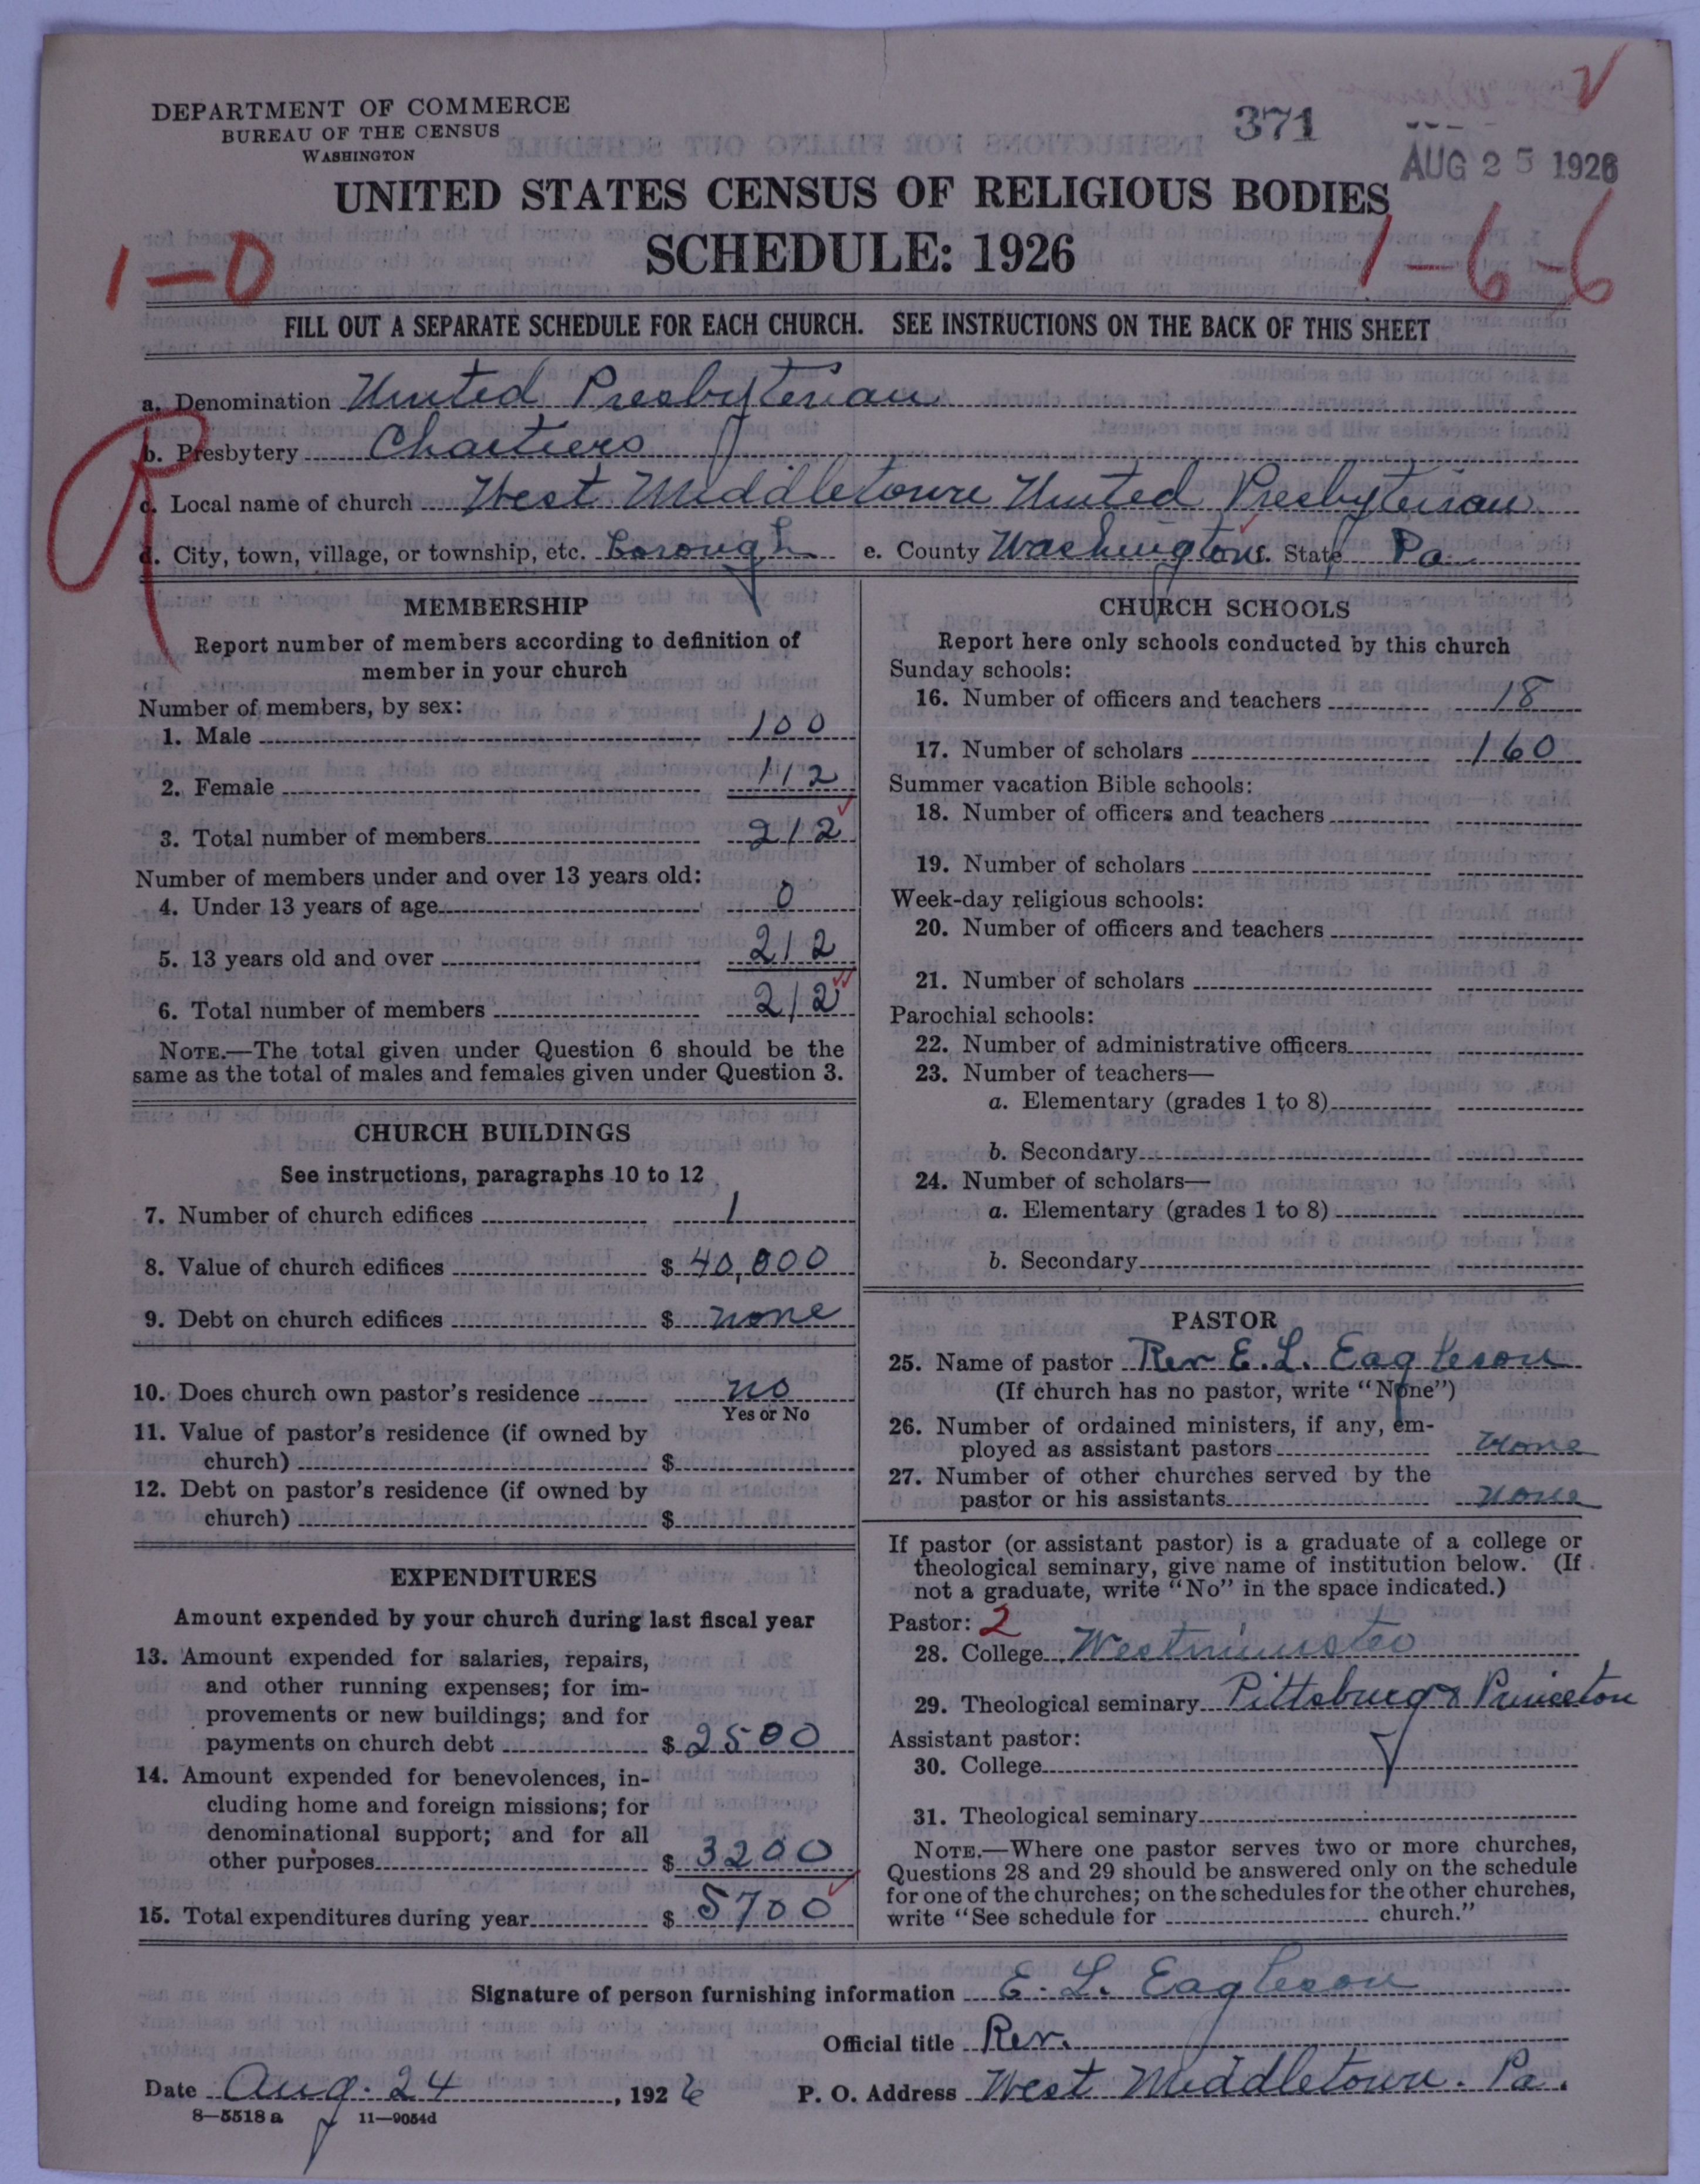 DEPARTMENT OF COMMERCE
BUREAU OF THE CENSUS
WASHINGTON
371
AUG 25 1926
UNITED STATES CENSUS OF RELIGIOUS BODIES
SCHEDULE: 1926
1-0
1-6-6
FILL OUT A SEPARATE SCHEDULE FOR EACH CHURCH. SEE INSTRUCTIONS ON THE BACK OF THIS SHEET
a. Denomination United Presbyterian
b. Presbytery Chartiers
c. Local name of church West Middletown United Presbyterian
d. City, town, village, or township, etc. Borough e. County Washington f. State Pa
MEMBERSHIP
Report number of members according to definition of
member in your church
Number of members, by sex:
1. Male 100
2. Female 112
3. Total number of members 212
Number of members under and over 13 years old:
4. Under 13 years of age 0
5. 13 years old and over 212
6. Total number of members 212
NOTE.—The total given under Question 6 should be the
same as the total of males and females given under Question 3.
CHURCH BUILDINGS
See instructions, paragraphs 10 to 12
7. Number of church edifices 1
8. Value of church edifices $ 40,000
9. Debt on church edifices $ none
10. Does church own pastor's residence no
Yes or No
11. Value of pastor's residence (if owned by
church) $
12. Debt on pastor's residence (if owned by
church) $
EXPENDITURES
Amount expended by your church during last fiscal year
13. Amount expended for salaries, repairs,
and other running expenses; for im-
provements or new buildings; and for
payments on church debt $ 2500
14. Amount expended for benevolences, in-
cluding home and foreign missions; for
denominational support; and for all
other purposes $ 3200
15. Total expenditures during year $ 5700
CHURCH SCHOOLS
Report here only schools conducted by this church
Sunday schools:
16. Number of officers and teachers 18
17. Number of scholars 160
Summer vacation Bible schools:
18. Number of officers and teachers
19. Number of scholars
Week-day religious schools:
20. Number of officers and teachers
21. Number of scholars
Parochial schools:
22. Number of administrative officers
23. Number of teachers—
a. Elementary (grades 1 to 8)
b. Secondary
24. Number of scholars—
a. Elementary (grades 1 to 8)
b. Secondary
PASTOR
25. Name of pastor Rev E. L. Eagleson
(If church has no pastor, write "None")
26. Number of ordained ministers, if any, em-
ployed as assistant pastors None
27. Number of other churches served by the
pastor or his assistants None
If pastor (or assistant pastor) is a graduate of a college or
theological seminary, give name of institution below. (If
not a graduate, write "No" in the space indicated.)
Pastor: 2
28. College Westminster
29. Theological seminary Pittsburg & Princeton
Assistant pastor:
30. College
31. Theological seminary
NOTE.—Where one pastor serves two or more churches,
Questions 28 and 29 should be answered only on the schedule
for one of the churches; on the schedules for the other churches,
write "See schedule for church."
Signature of person furnishing information E. L. Eagleson
Official title Rev.
Date Aug. 24, 1926 P. O. Address West Middletown. Pa.
8—5518 a 11—9054d